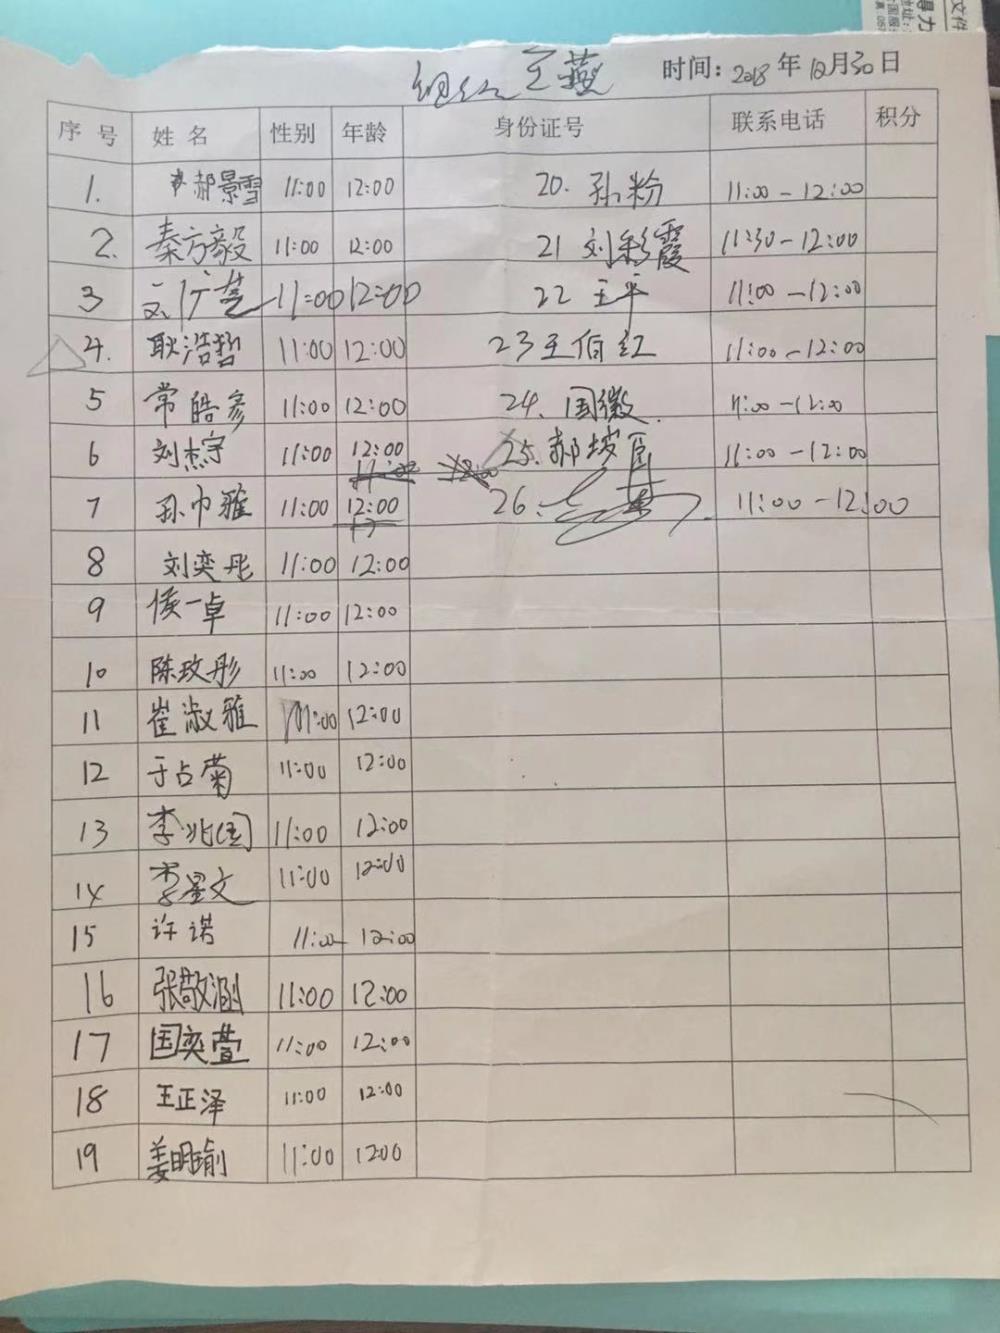 文件
得力
王燕 时间: 2018 年 10月30日
序 号 姓 名 性别 年龄 身份证号 联系电话 积分
1. 郝景雪 11:00 12:00 20. 孙粉 11:00-12:00
2. 秦方毅 11:00 12:00 21 刘彩霞 11:30-12:00
3 刘广芝 11:00 12:00 22 王平 11:00-12:00
4. 耿浩哲 11:00 12:00 23 王伯红 11:00-12:00
5 常皓彦 11:00 12:00 24. 国徽 11:00-12:00
6 刘杰宇 11:00 12:00 25. 郝 11:00-12:00
7 孙巾雅 11:00 12:00 26. 11:00-12:00
8 刘奕彤 11:00 12:00
9 侯一卓 11:00 12:00
10 陈玟彤 11:00 12:00
11 崔淑雅 11:00 12:00
12 于占菊 11:00 12:00
13 李兆国 11:00 12:00
14 李星文 11:00 12:00
15 许诺 11:00 12:00
16 张敬涵 11:00 12:00
17 国奕萱 11:00 12:00
18 王正泽 11:00 12:00
19 姜明瑜 11:00 1200